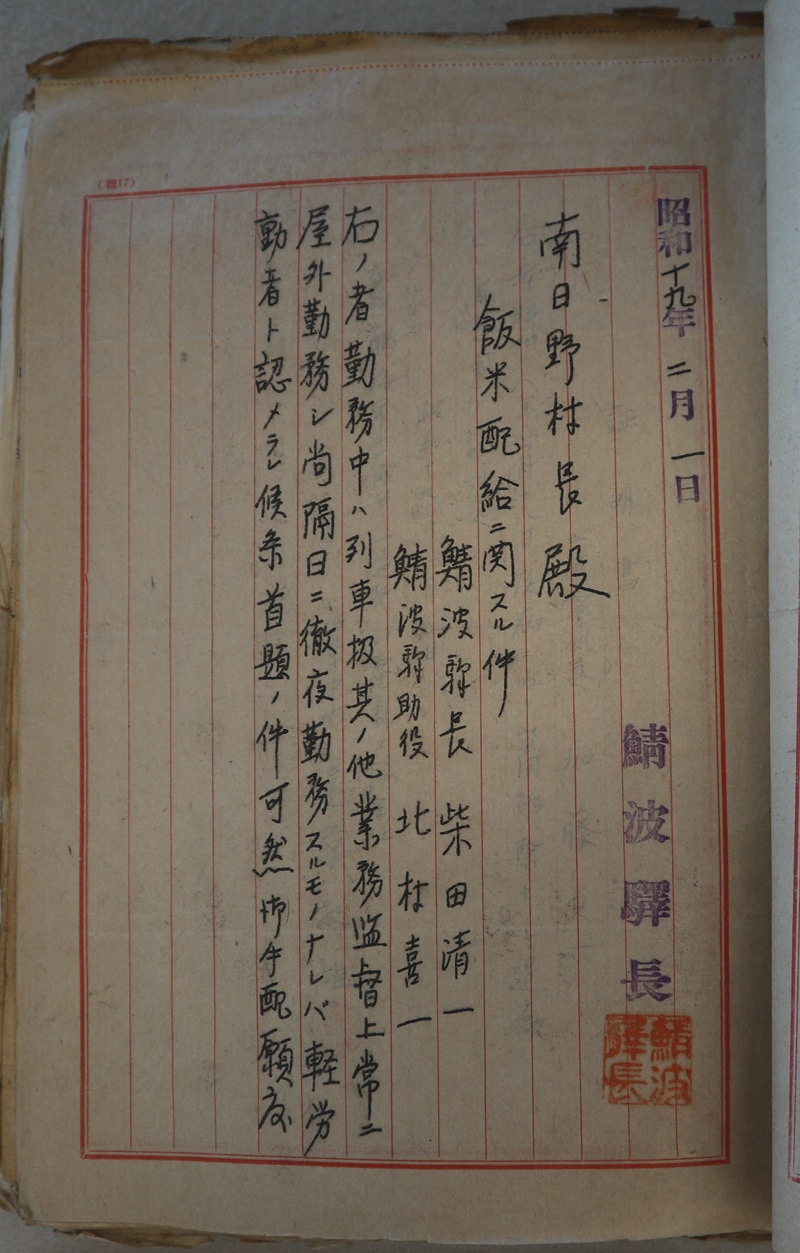 (雑17)
昭和十九年二月一日
鯖波驛長
鯖波驛長
南日野村長殿
飯米配給ニ関スル件
鯖波駅長 柴田清一
鯖波駅助役 北村喜一
右ノ者勤務中ハ列車扱其ノ他業務監督上常ニ
屋外勤務シ尚隔日ニ徹夜勤務スルモノナレバ軽労
働者ト認メラレ候条首題ノ件可然御手配願度